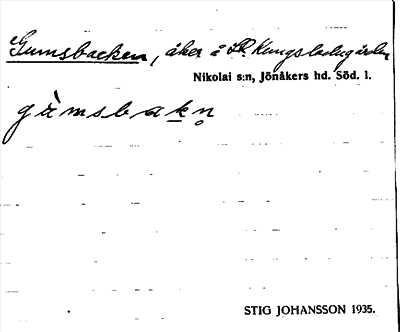 Gumsbacken, åker å Kungsladugården
Nikolai s:n, Jönåkers hd. Söd. l.
gu̇̀msbakn̥
STIG JOHANSSON 1935.